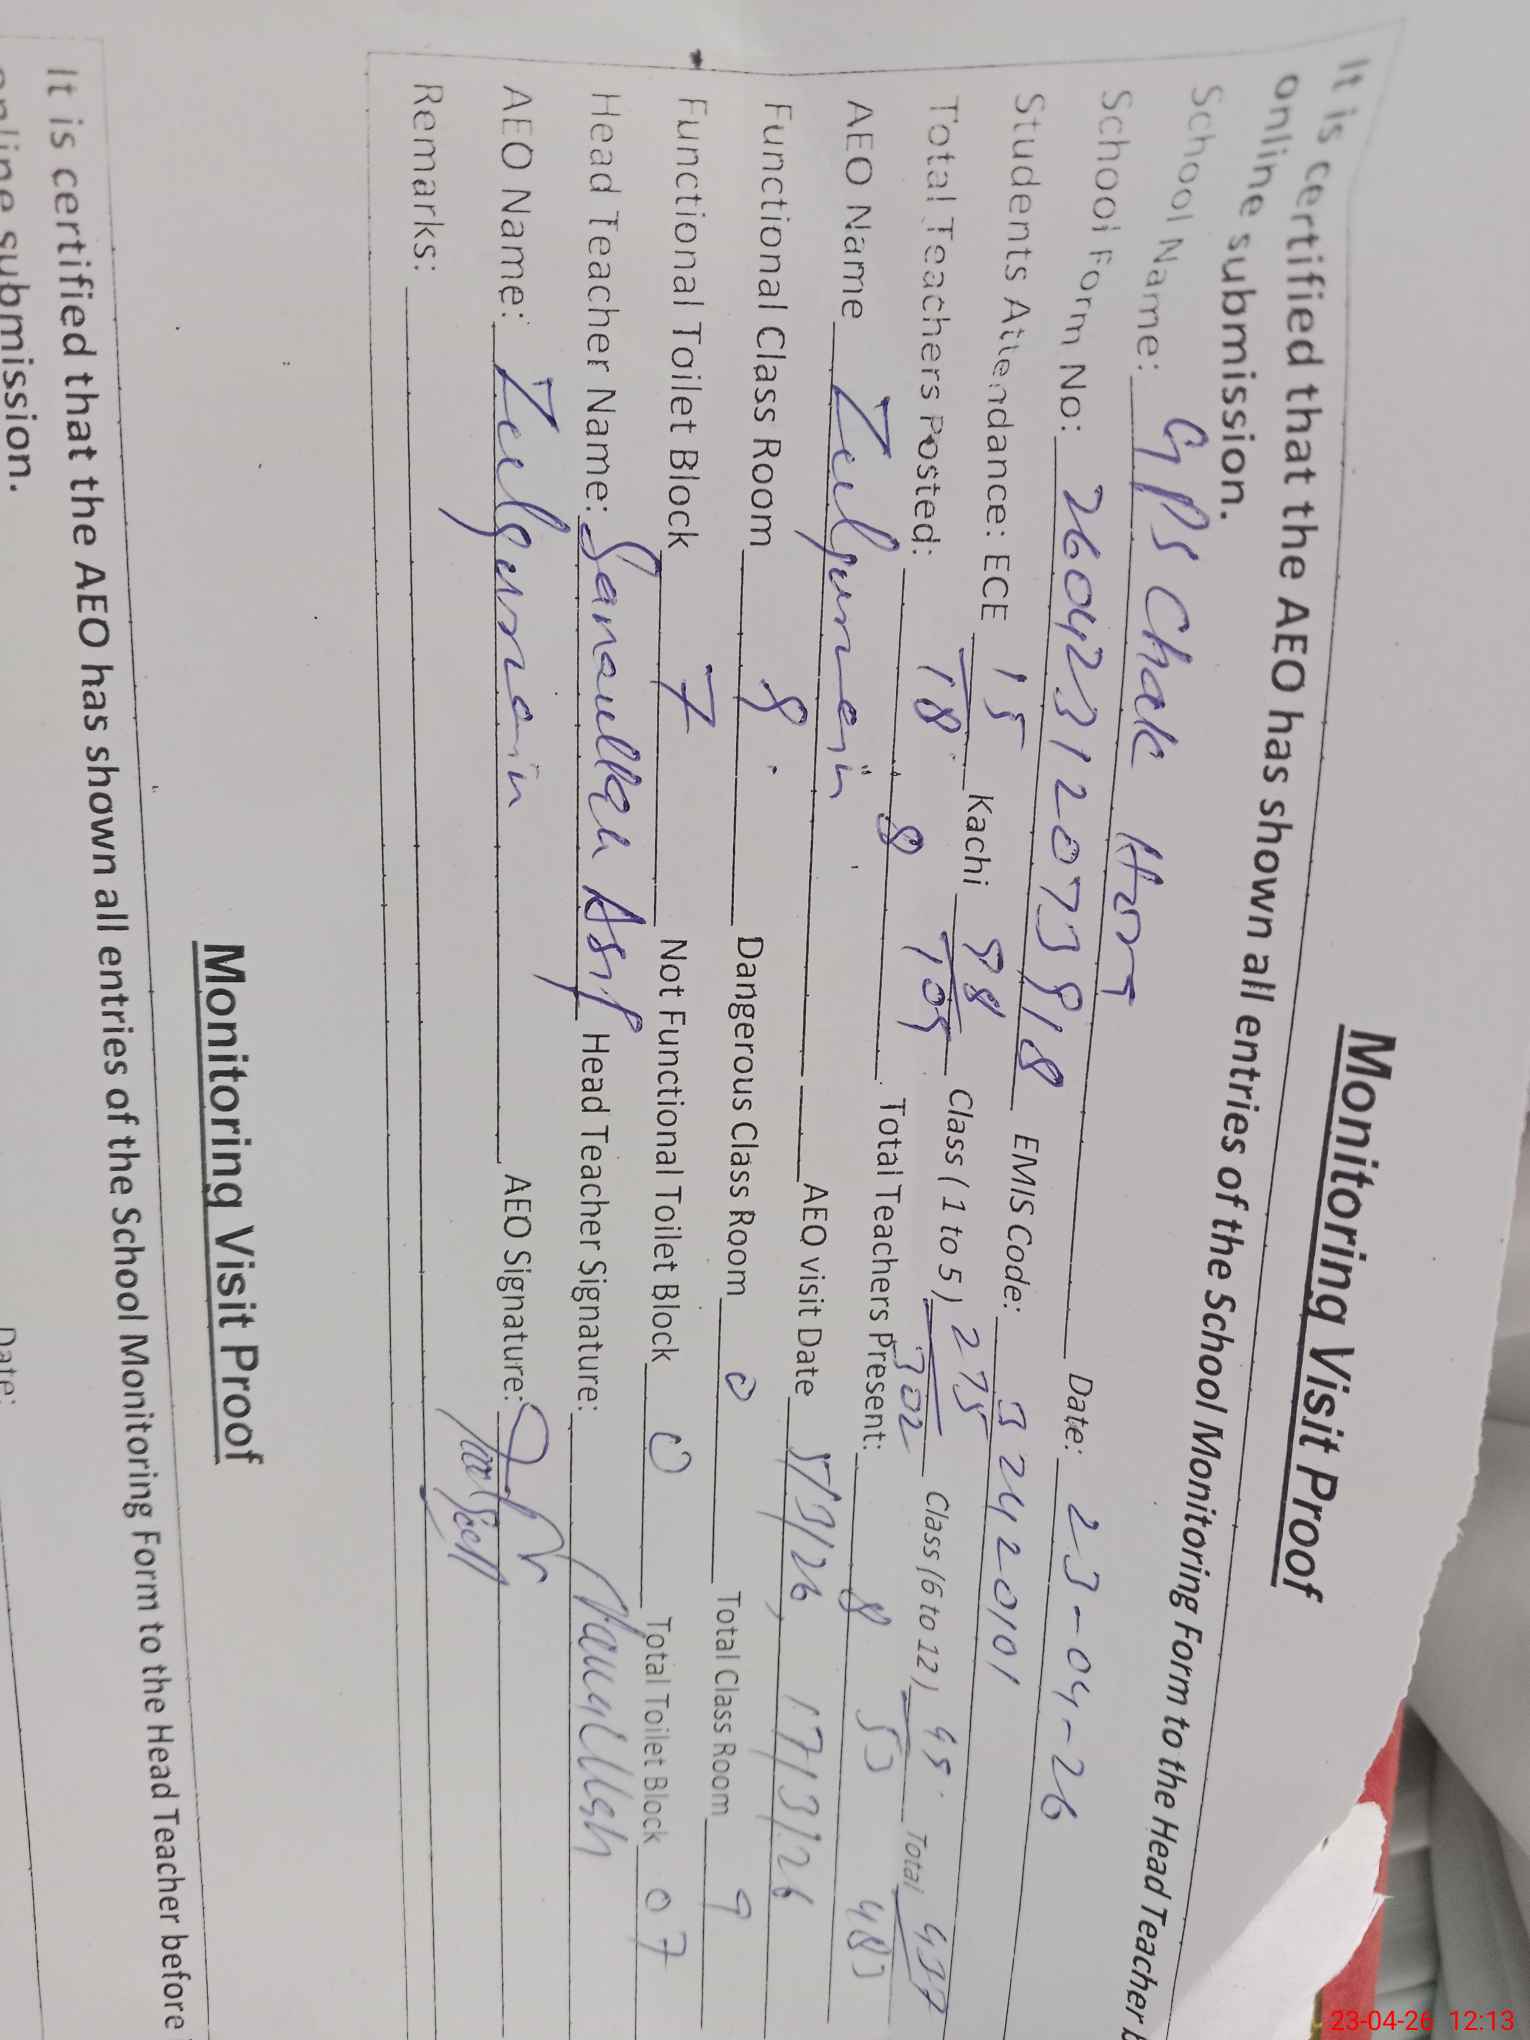 Monitoring Visit Proof
It is certified that the AEO has shown all entries of the School Monitoring Form to the Head Teacher b
online submission.
School Name: GPS Chak Date: 23-04-26
School Form No: 26042312073918 EMIS Code: 32420101
Students Attendance: ECE 15/18 Kachi 98/109 Class (1 to 5) 275/302 Class (6 to 12) Total
Total Teachers Posted: 8 Total Teachers Present: 8
AEO Name Zulqurnain AEO visit Date 5/3/26, 17/3/26
Functional Class Room 8 Dangerous Class Room 0 Total Class Room 9
Functional Toilet Block 7 Not Functional Toilet Block 0 Total Toilet Block 07
Head Teacher Name: Sanaullah Head Teacher Signature:
AEO Name: Zulqurnain AEO Signature:
Remarks:
Monitoring Visit Proof
It is certified that the AEO has shown all entries of the School Monitoring Form to the Head Teacher before
online submission.
Date:
23-04-26 12:13